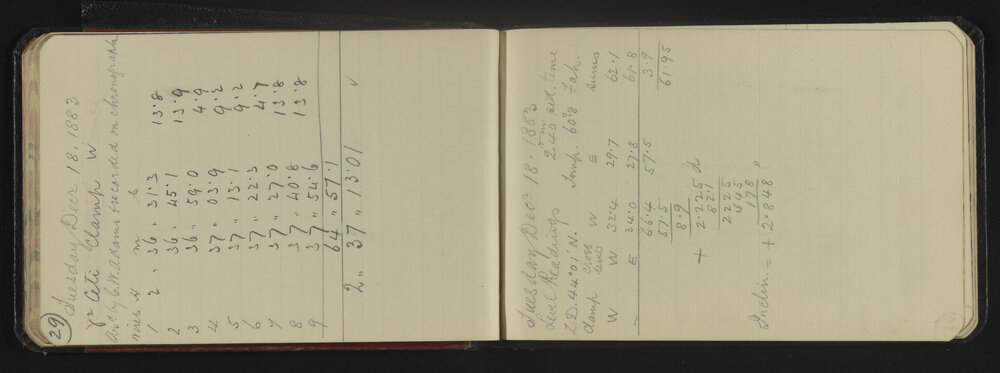 29
Tuesday Decr 18, 1883
γ2 Ceti Clamp W
Obsd by C.W. Adams & recorded on chronograph
Wires h m s
1 2 " 36 " 31.3 13.8
2 36 " 45.1 13.9
3 36 " 59.0 4.9
4 37 " 03.9 9.2
5 37 " 13.1 9.2
6 37 " 22.3 4.7
7 37 " 27.0 13.8
8 37 " 40.8 13.8
9 37 " 54.6
64 " 57.1
2 " 37 " 13.01 ✓
Tuesday Decr 18. 1883
Level Readings 2h 40m sid. time
Z.D. 44° 01' N. Temp. 60°.8 Fah.
Clamp Cross level W E sums
W W 32.4 29.7 62.1
– E 34.0 27.8 61.8
66.4 57.5 3.9
57.5 61.95
8.9
+ 2.225 d
821
2225
445
178
Inclin. = + 2.848 "